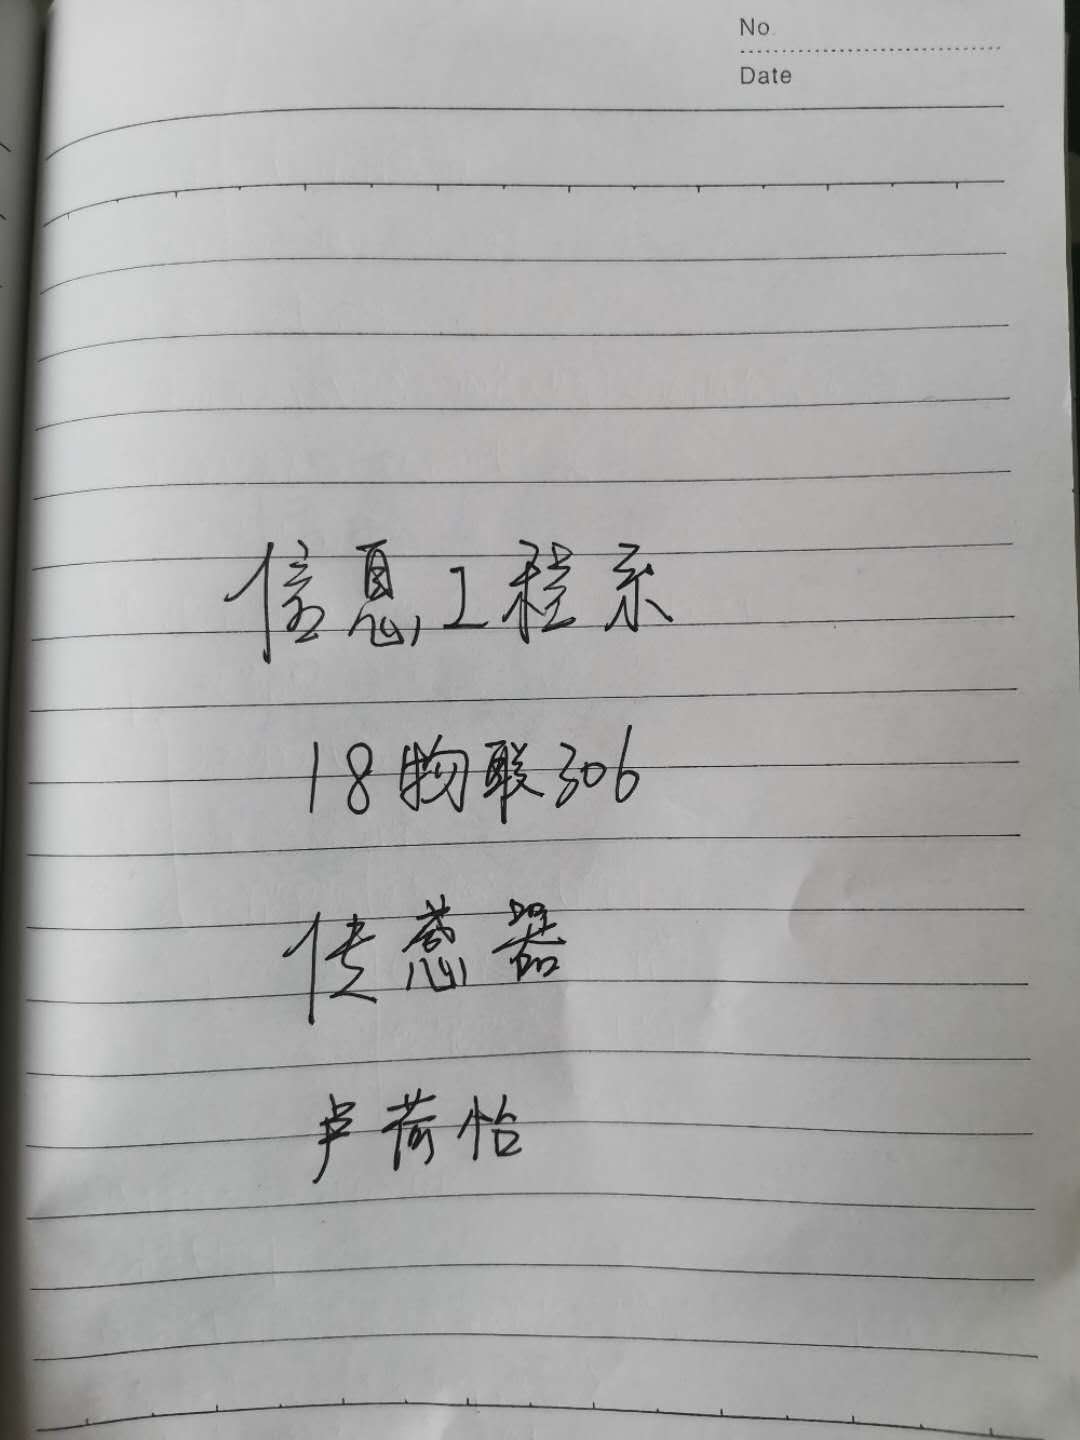 No.
Date
信息工程系
18物联306
传感器
卢荷怡